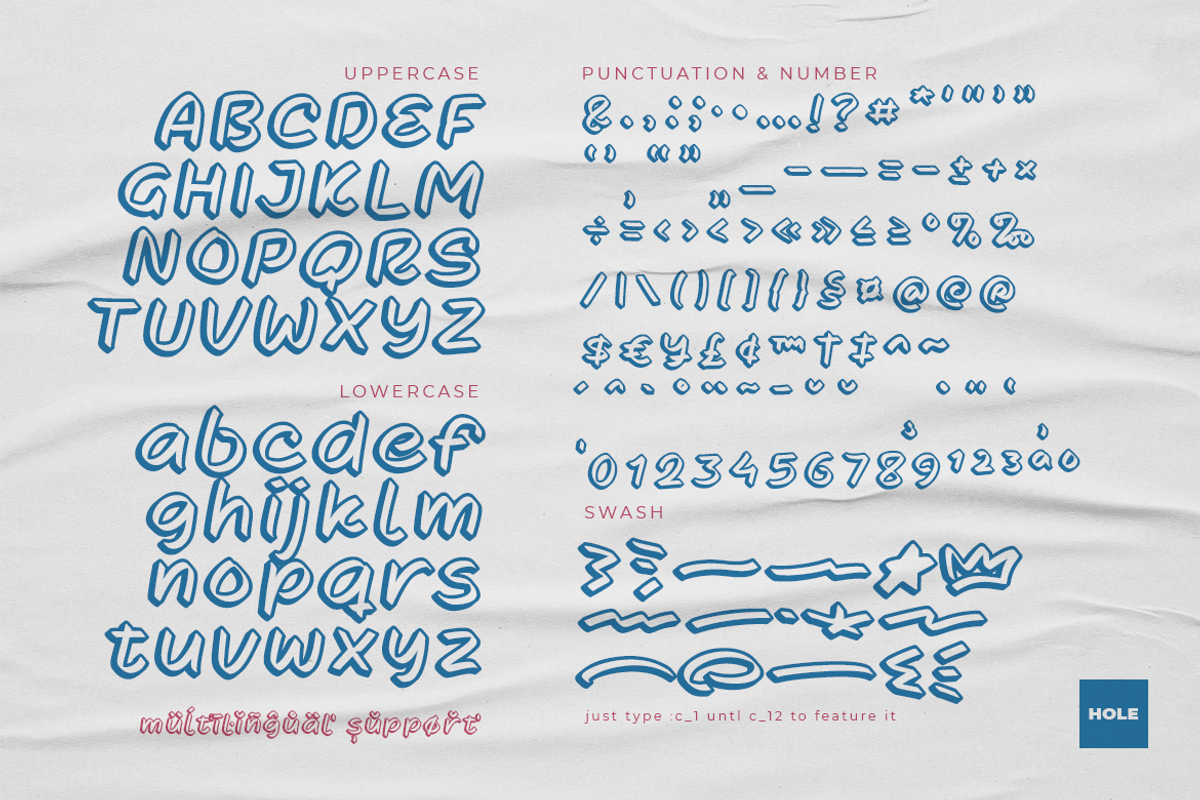 UPPERCASE
ABCDEF
GHIJKLM
NOPQRS
TUVWXYZ
LOWERCASE
abcdef
ghijklm
nopqrs
tuvwxyz
PUNCTUATION & NUMBER
&.,:;·•…!?#*'"'"
‘’ “”
‚ „_-—=–±+×
÷=<><>«»≤≥°%‰
/|\()[]{}§¤@@@
$€¥£¢™†‡^~
0123456789123ao
SWASH
just type :c_1 untl c_12 to feature it
HOLE